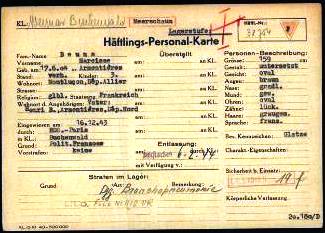 KL.: Meerschaum
Lagerstufe:
Häftl.-Nr.:
Häftlings-Personal-Karte
Fam.-Name:
Vorname: Narcisse
geb. am 17.6.04 in Armentières
Stand: verh. Kinder: 3.
Wohnort: Montluçon, Allier
Religion: glbl. Staatsang. Frankreich
Wohnort d. Angehörigen: Vater:
Armentières, Dép. Nord
Eingewiesen am: 16.12.43
durch: BDS.-Paris
in KL.: Buchenwald
Grund: Polit. Franzose
Vorstrafen: keine
Überstellt
am: an KL.:
am: an KL.:
am: an KL.:
am: an KL.:
am: an KL.:
am: an KL.:
Entlassung:
6.2.44
mit Verfügung v.:
Personen-Beschreibung:
Grösse: 159 cm
Gestalt: untersetzt
Gesicht: oval
Augen: braun
Nase: gradl.
Mund: gew.
Ohren: oval
Zähne: lück.
Haare: graugem.
Sprache: Franz.
Bes. Kennzeichen: Glatze
Charakt.-Eigenschaften:
Sicherheit b. Einsatz:
Körperliche Verfassung:
Strafen im Lager:
Grund: Art: Bemerkung:
Bronchopneumonie